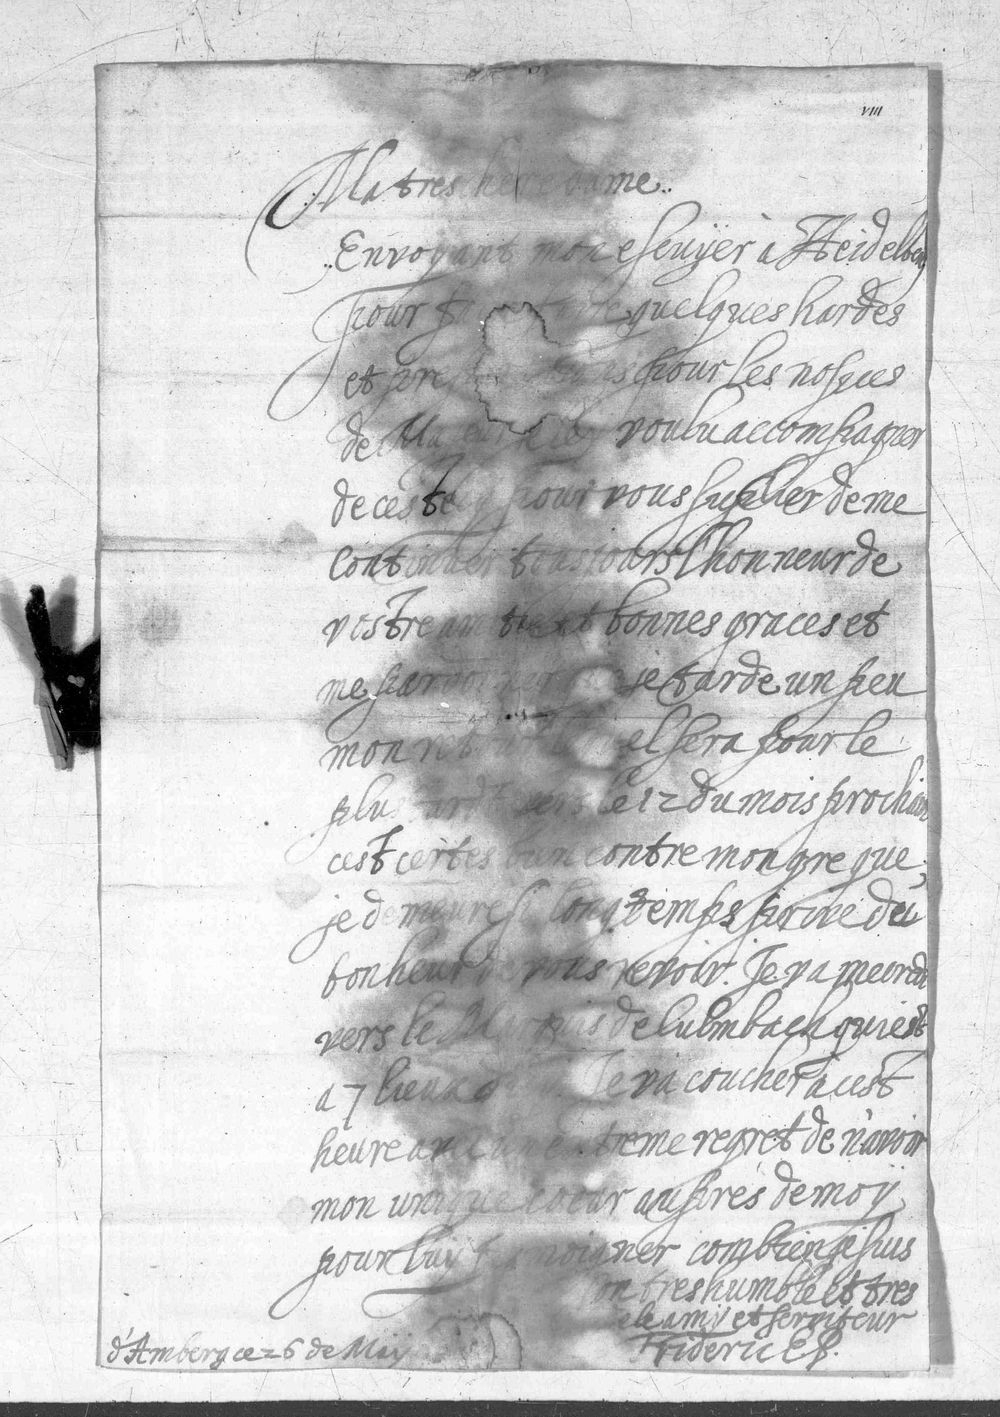 VIII
Ma tres chere dame.
Envoyant mon escuÿer à Heidelberg
pour quelques hardes
et pour les nopces
de voulu accompagner
de ceste pour vous suplier de me
continuer tousiours l'honneur de
vostre et bonnes graces et
me je tarde un peu
mon sera pour le
plus tard vers le 12 du mois prochain
cest certes bien contre mon gre que,
je demeure si longtemps privé du
bonheur de vous revoir. Je va
vers le Marquis de Culmbach qui est
a 7 lieux Je va coucher a cest
heure avec un extreme regret de n'avoir
mon unique coeur aupres de moÿ
pour luy temoigner combien je suis
tres humble et tres
amy et serviteur
d'Amberg ce 26 de Maÿ
Frideric EP.